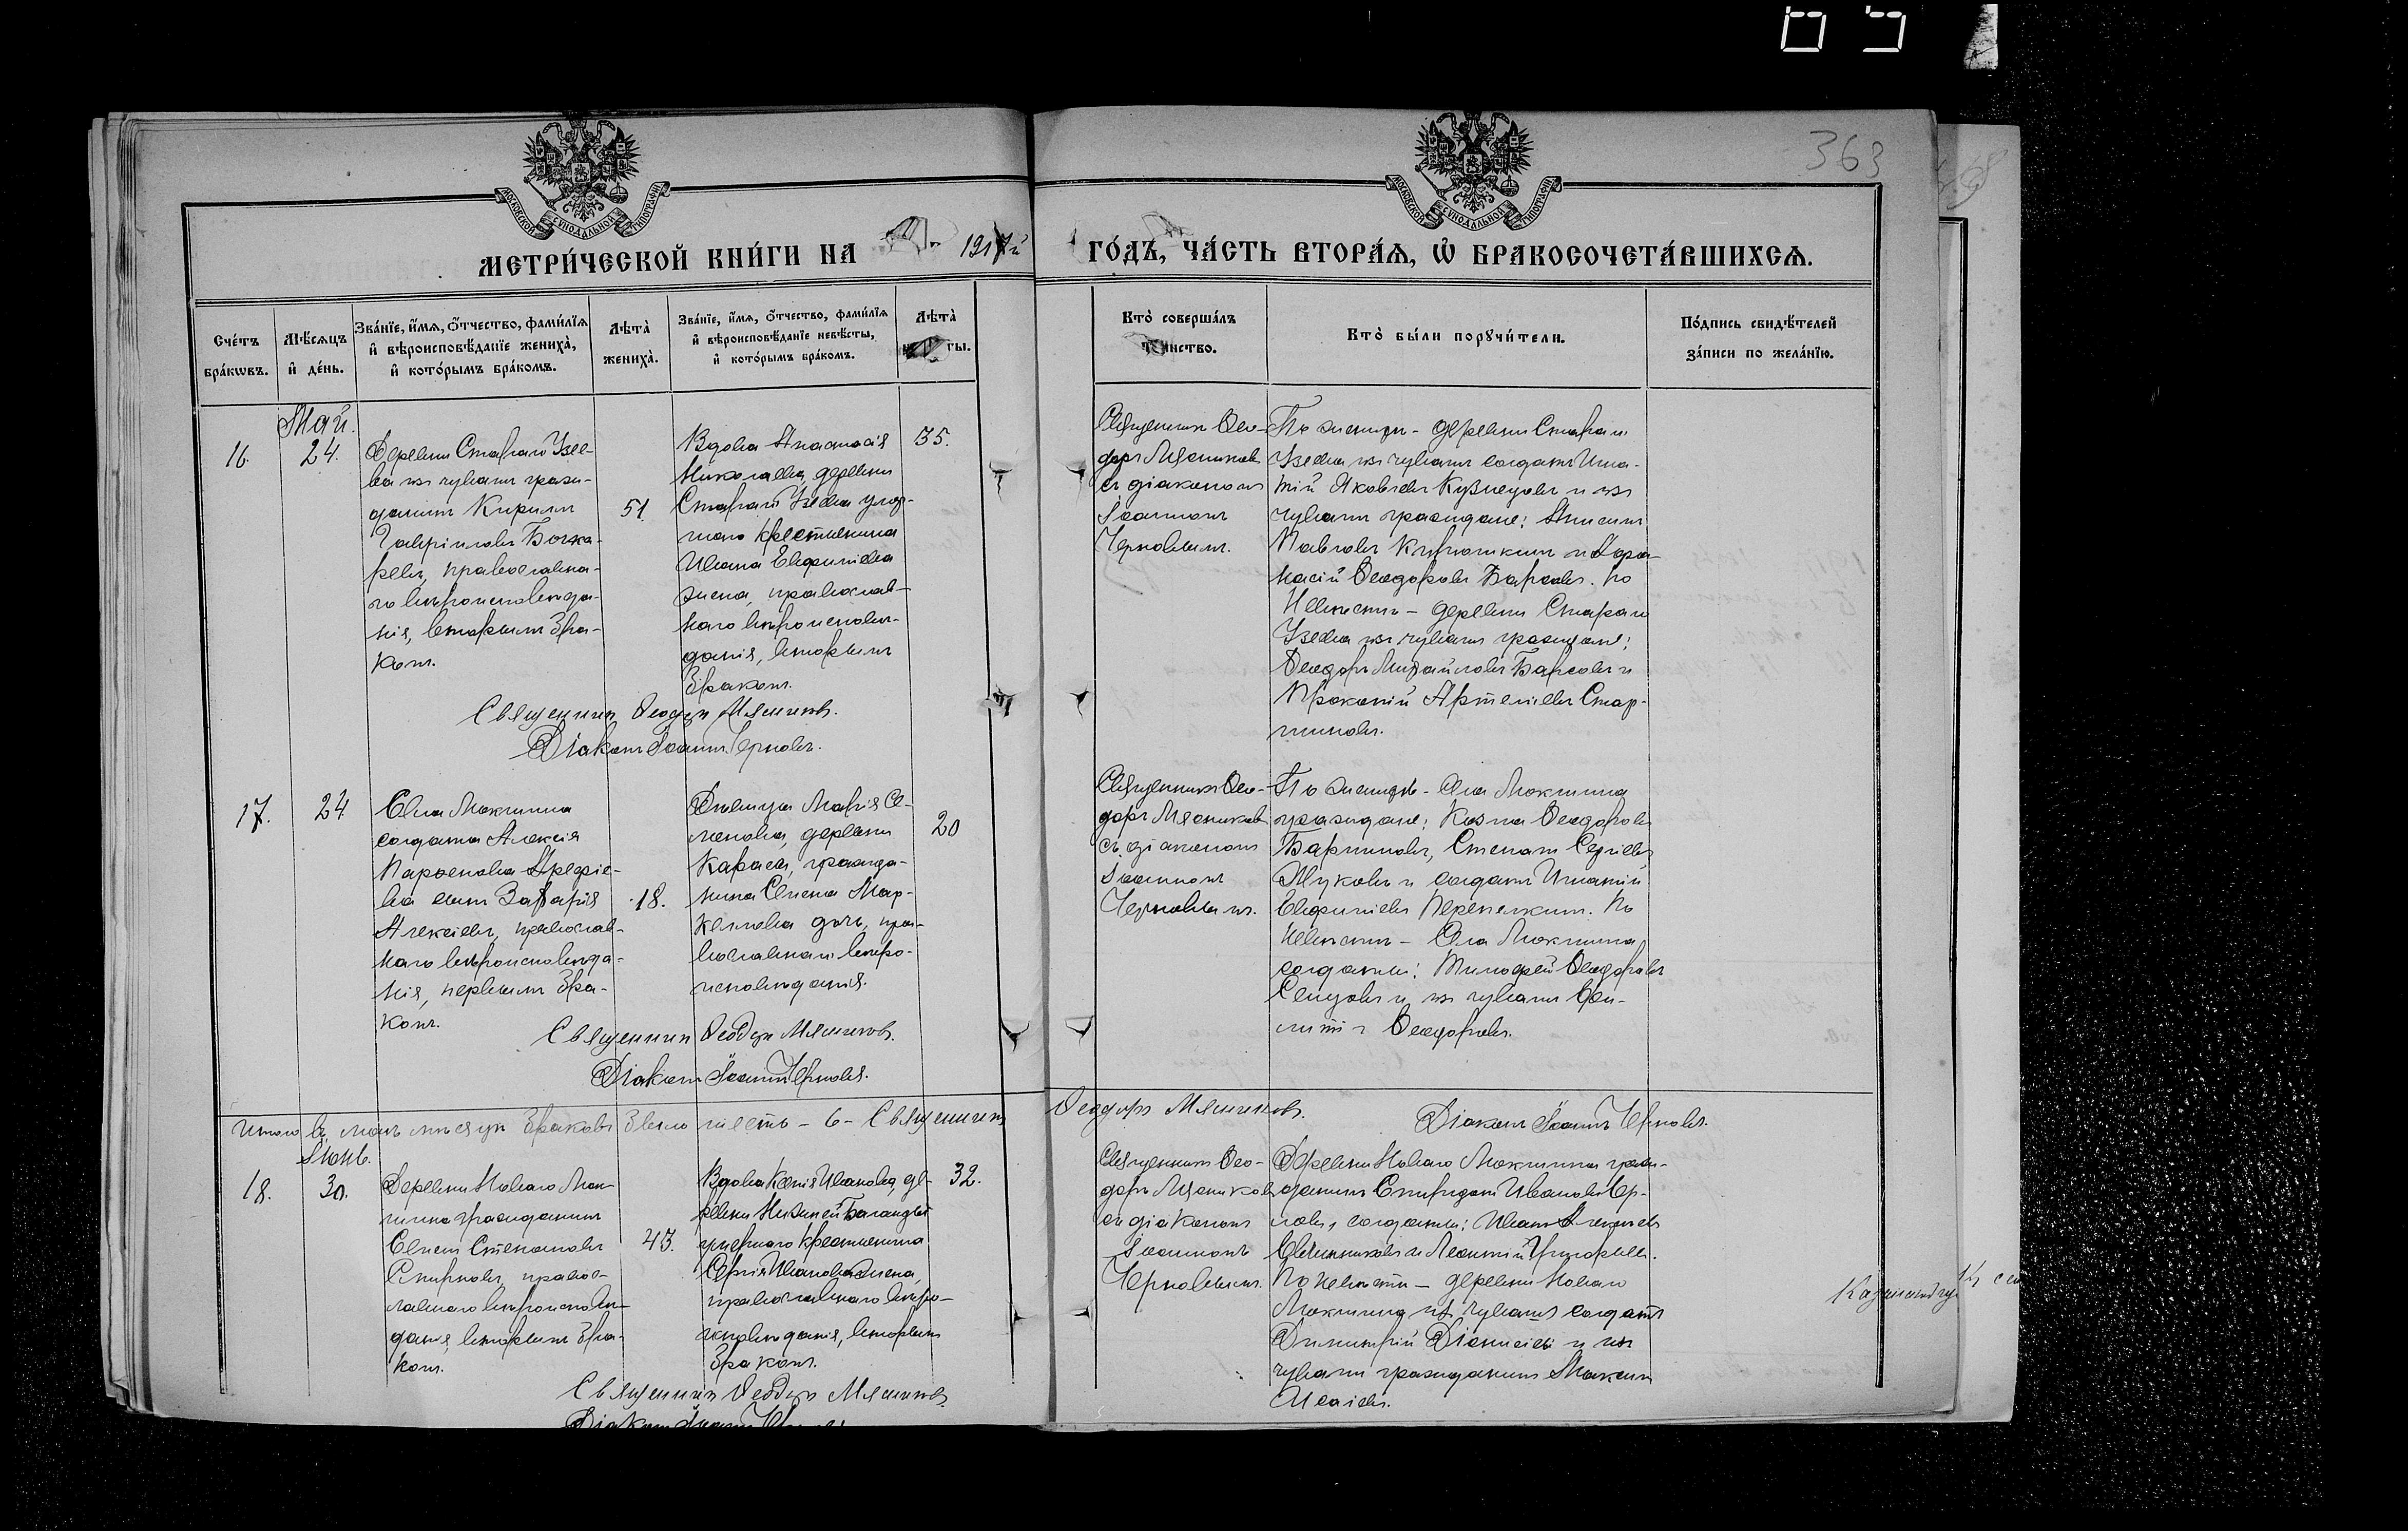 363
МОСКОВСКОЙ СУНОДАЛЬНОЙ ТИПОГРАФІИ
МОСКОВСКОЙ СУНОДАЛЬНОЙ ТИПОГРАФІИ
МЕТРИ́ЧЕСКОЙ КНИ́ГИ НА 1917й ГО́ДЪ, ЧА́СТЬ ВТОРА́Я, Ѡ БРАКОСОЧЕТА́ВШИХСЯ.
Сче́тъ бра́кѡвъ.
Мѣ́сяцъ и де́нь.
Зва́нїе, и́мя, о́тчество, фами́лїя и вѣроисповѣ́данїе жениха̀, и кото́рымъ бра́комъ.
Лѣта̀ жениха̀.
Зва́нїе, и́мя, о́тчество, фами́лїя и вѣроисповѣ́данїе невѣ́сты, и кото́рымъ бра́комъ.
Лѣта̀ ты.
Кто̀ соверша́лъ таинство.
Кто̀ бы́ли порꙋчи́тели.
По́дпись свидѣ́телей за́писи по жела́нїю.
Май.
16.
24.
Деревни Стараго Узее-
ва изъ чувашъ граж-
данинъ Кириллъ
Гавріиловъ Бочка-
ревъ, православна-
го вѣроисповѣда-
нія, вторымъ бра-
комъ.
51.
Вдова Анастасія
Николаева, деревни
Стараго Узеева умер-
шаго крестьянина
Ивана Евфиміева
жена, православ-
наго вѣроисповѣ-
данія, вторымъ
бракомъ.
35.
Священникъ Ѳео-
доръ Мясниковъ
съ діакономъ
Іоанномъ
Черновымъ.
По женихѣ - деревни Стараго
Узеева изъ чувашъ солдатъ Игна-
тій Яковлевъ Кузнецовъ и изъ
чувашъ граждане: Анисимъ
Павловъ Кирюшкинъ и Афа-
насій Ѳеодоровъ Барсовъ. По
Невѣстѣ - деревни Стараго
Узеева изъ чувашъ граждане:
Ѳеодоръ Михайловъ Барсовъ и
Прокопій Артемьевъ Стар-
шиновъ.
Священникъ Ѳеодоръ Мясниковъ.
Діаконъ Іоаннъ Черновъ.
17.
24
Села Мокшина
солдата Алексія
Парѳенова Арефье-
ва сынъ Захарія
Алексіевъ, православ-
наго вѣроисповѣда-
нія, первымъ бра-
комъ.
18.
Дѣвица Марія Се-
менова, деревни
Караса, гражда-
нина Семена Мар-
келлова дочь, пра-
вославнаго вѣро-
исповѣданія.
20
Священникъ Ѳео-
доръ Мясниковъ
съ діакономъ
Іоанномъ
Черновымъ.
По женихѣ - Села Мокшина
граждане: Козма Ѳеодоровъ
Баршновъ, Степанъ Сергіевъ
Жуковъ и солдатъ Игнатій
Евфиміевъ Перепелкинъ. По
Невѣстѣ - Села Мокшина
солдаты: Тимофей Ѳеодоровъ
и изъ чувашъ
Ѳеодоровъ.
Священникъ Ѳеодоръ Мясниковъ.
Діаконъ Іоаннъ Черновъ.
Итого въ маѣ мѣсяцѣ браковъ было шесть - 6 - Священникъ Ѳеодоръ Мясниковъ. Діаконъ Іоаннъ Черновъ.
Іюнь.
18.
30.
Деревни Новаго Мок-
шина гражданинъ
Семенъ Степановъ
Спирновъ, правос-
лавнаго вѣроисповѣ-
данія, вторымъ бра-
комъ.
43.
Вдова Ксенія Иванова, де-
ревни Нижней Баланды
умершаго крестьянина
Сергія Иванова жена,
православнаго вѣро-
исповѣданія, вторымъ
бракомъ.
32.
Священникъ Ѳео-
доръ Мясниковъ
съ діакономъ
Іоанномъ
Черновымъ.
Деревни Новаго Мокшина граж-
данинъ Спиридонъ Ивановъ
солдаты: Иванъ Алексіевъ
Овчинниковъ и Леонтій Григорьевъ.
По Невѣстѣ - деревни Новаго
Мокшина изъ чувашъ солдатъ
Димитрій Діонисіевъ и изъ
чувашъ гражданинъ Максимъ
Исаіевъ.
Священникъ Ѳеодоръ Мясниковъ
Діаконъ Іоаннъ